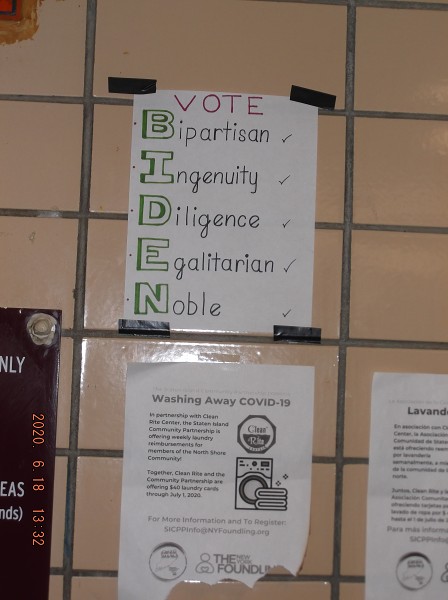 VOTE
Bipartisan ✓
Ingenuity ✓
Diligence ✓
Egalitarian ✓
Noble ✓
Washing Away COVID-19
In partnership with Clean
Rite Center, the Staten Island
Community Partnership is
offering weekly laundry
reimbursements for
members of the North Shore
Community!
Together, Clean Rite and the
Community Partnership are
offering $40 laundry cards
through July 1, 2020.
Clean
Rite
For More Information and To Register:
SICPPInfo@NYFoundling.org
THE
NEW YORK
FOUNDLIN
Lavand
En asociación con Cl
Center, la Asociación
Comunidad de Staten
está ofreciendo reem
por lavandería
semanalmente, a mie
de la comunidad de
norte.
Juntos, Clean Rite y la
Asociación Comunita
ofreciendo tarjetas p
lavado de ropa por $
hasta el 1 de julio de
Para más inform
SICPPInfo@
NLY
EAS
nds)
2020. 6.18 13:32